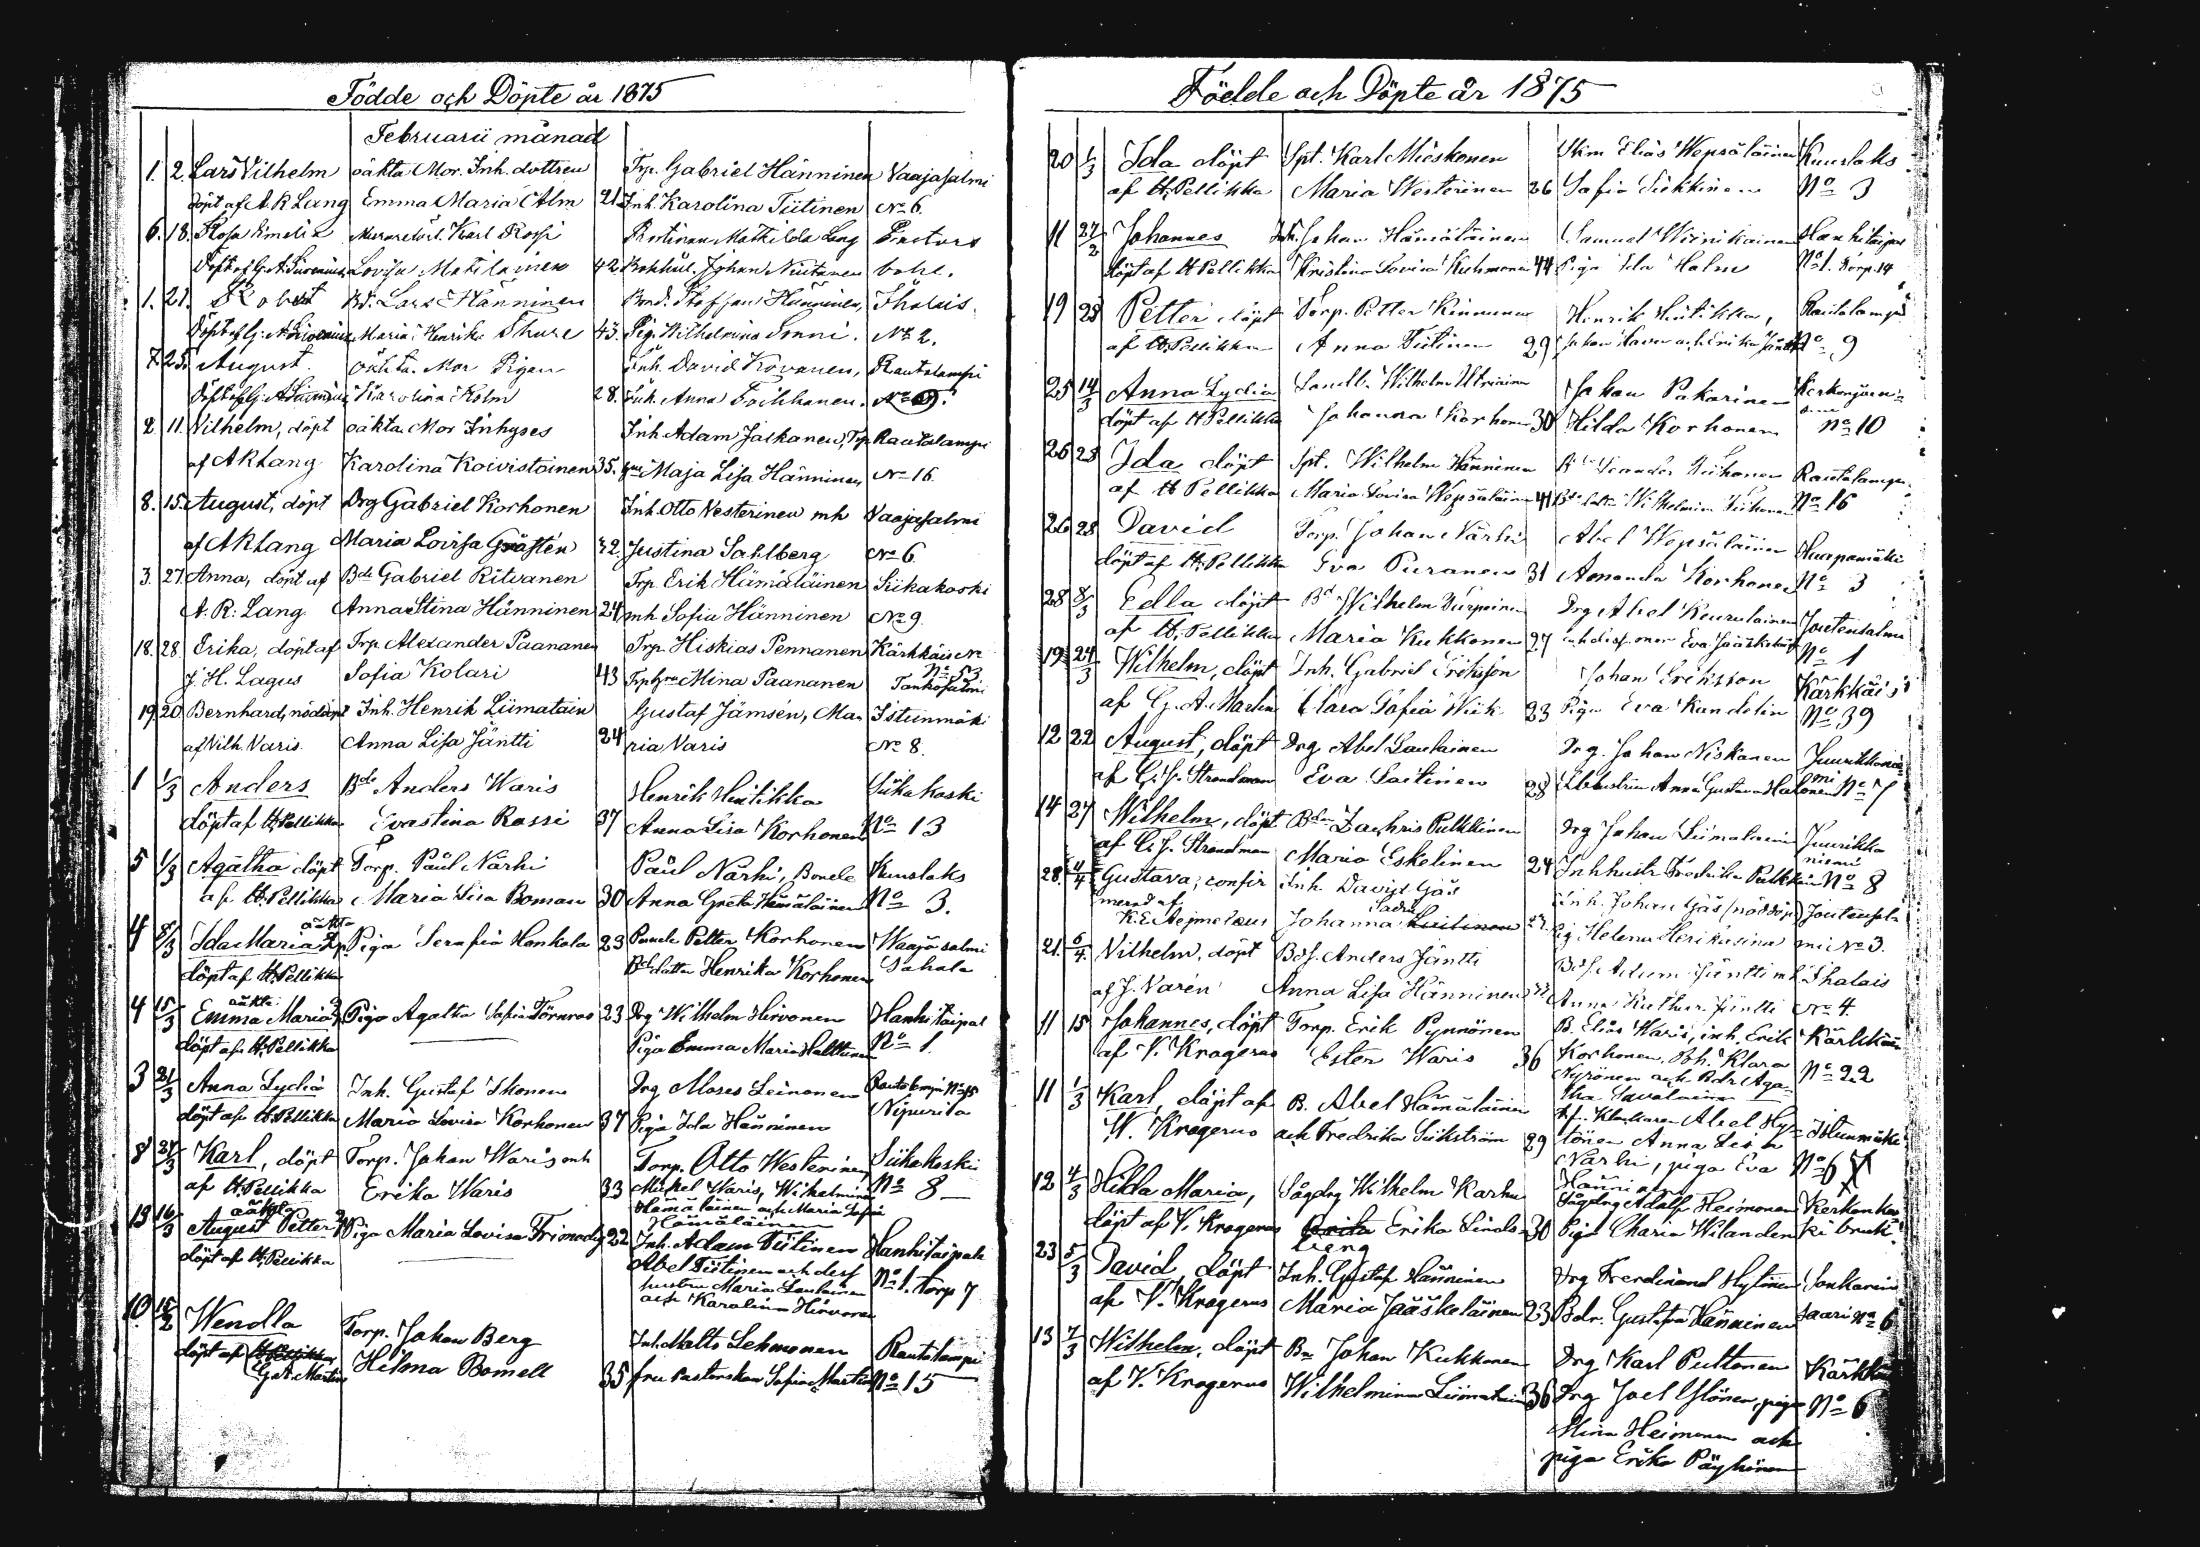 Födde och Döpte år 1875
Februarii månad
1. 2. Lars Vilhelm oäkta Mor. Inh. dottren Trp. Gabriel Hänninen Vaajasalmi
döpt af A. R Lang Emma Maria Alm 21 Inh. Karolina Tiitinen No 6.
6. 18. Rosa Emelia Karl Rossi Mathilda Lang
Döpt af G. A. Lovisa Matilainen 42 Johan Niutanen
1. 21. Robert Bd. Lars Hänninen Bond. Staffan Hänninen, Thalais
Döpt af G. A. Maria Henrika Thure 43. Pig. Wilhelmina Onni. No 2.
7. 25. August oäkta. Mor Pigan Inh. David Kovanen, Rautalampi
Döpt af G. A. Karolina Holm 28. Inh. Anna No
2. 11. Vilhelm, döpt oäkta Mor Inhyses Inh Adam Jäskanen, Trp Rautalampi
af AR Lang Karolina Koivistoinen 35. Maja Lisa Hänninen No 16.
8. 15. August, döpt Drg Gabriel Korhonen Inh. Otto Vesterinen mh Vaajasalmi
af AR Lang Maria Lovisa Grästen 32. Justina Sahlberg No 6
3. 27. Anna, döpt af Bde Gabriel Ritvanen Trp Erik Hämäläinen Siikakoski
A. R: Lang Anna Stina Hänninen 24 mh Sofia Hänninen No 9.
18. 28. Erika, döpt af Trp Alexander Paananen Trp. Hiskias Pennanen Kärkkäis
J. H. Lagus Sofia Kolari 43 Mina Paananen No 53 Tankosalmi
19. 20. Bernhard, nöddöpt Inh. Henrik Liimatain Gustaf Jämsén, Ma= Istunmäki
af Vilh. Varis. Anna Lisa Jäntti 24 ria Varis No 8.
1 1/3 Anders Bde Anders Waris Henrik Hintikka Siikakoski
döpt af H. Pellikka Evastina Rossi 37 Anna Lisa Korhonen No 13
5 1/3 Agatha döpt Torp. Pául Närhi Pául Närhi, Bonde Kuuslaks
af H. Pellikka Maria Lisa Boman 30 Anna Greta Hämäläinen No 3.
4 8/3 Ida Maria oäkta Piga Serafia Hankala 23 Bonde Petter Korhonen Waajasalmi
döpt af H. Pellikka Bdedotter Henrika Korhonen Sahala
4 15/3 oäkta Emma Maria Piga Agatha Sofia Törnroos 23 Drg Wilhelm Hirvonen Hanhitaipal
döpt af H. Pellikka Piga Emma Maria Halttunen No 1.
3 21/3 Anna Lydia Inh. Gustaf Ikonen Drg Moses Leinonen Rautalampi No 45
döpt af H. Pellikka Maria Lovisa Korhonen 37 Piga Ida Hänninen Nipurila
8 21/3 Karl, döpt Torp. Johan Waris och Torp. Otto Westerinen Siikakoski
af H. Pellikka Erika Waris 33 Mickel Waris, Wilhelmina No 8
Hämäläinen och Maria Sofia
Hämäläinen
13 16/3 oäkta August Petter Piga Maria Lovisa 22 Inh. Adam Tiitinen Hanhitaipale
döpt af H. Pellikka Abel Tiitinen och dess No 1. Torp 7
hustru Maria Laulainen
och Karolina Hirvonen
10 15/2 Wendla Torp. Johan Berg Inh. Matts Lehmonen Rautalampi
döpt af H. Pellikka Hilma Bomell 35 fru Pastorskan Sofia Martin No 15
G. A. Martin
Födde och Döpte år 1875
20 1/3 Ida döpt Spt. Karl Mieskonen Skm Elias Wepsäläinen Kuuslaks
af H. Pellikka Maria Westerinen 26 Sofia Tiikkinen No 3
11 27/2 Johannes Inh. Johan Hämäläinen Samuel Wiinikainen Hanhitaipal
döpt af H Pellikka Kristina Lovisa Kuhmonen 44 Piga Ida Holm No 1. Torp. 14
19 28 Petter döpt Torp. Petter Kinnunen Henrik Hintikka, Rautalampi
af H. Pellikka Anna Tiitinen 29 Johan och Erika Jäntti No 9
25 14/3 Anna Lydia Landb. Wilhelm Utriainen Johan Pakarinen Kerkonjoen=
döpt af H Pellikka Johanna Korhonen 30 Hilda Korhonen No 10
26 28 Ida döpt Spt. Wilhelm Hänninen Leander Tiihonen Rautalampi
af H Pellikka Maria Lovisa Wepsäläinen 41 Wilhelmina Tiihonen No 16
26 28 David Torp. Johan Närhi Abel Wepsäläinen Haapamäki
döpt af H. Pellikka Eva Piiranen 31 Amanda Korhonen No 3
28 8/3 Edla döpt Bd Wilhelm Turpeinen Drg Abel Kuurulainen Joutensalmi
af H. Pellikka Maria Kukkonen 27 Eva Jääskeläinen No 1
19 24/3 Wilhelm, döpt Inh. Gabriel Eriksson Johan Eriksson Kärkkäis
af G. A. Martin Clara Sofia Wiik 23 Piga Eva Kandelin No 39
12 22 August, döpt Drg Abel Laulainen Drg. Johan Niskanen Juurikkanie=
af C. J. Strandman Eva Laitinen 28 Anna Gustava Halonen mi No 7
14 27 Wilhelm, döpt Bdn Zachris Pulkkinen Drg Johan Liimatainen Juurikka
af C. J. Strandman Maria Eskelinen 24 Inhhustr. Fredrika Pulkkinen niemi No 8
28. 4/4 Gustava, confir Inh. David Gäs Inh. Johan Gäs (nöddöpt) Joutensal=
merad af K. E. Aejmelaeus Johanna Pig Helena Henrikasina mi No 3.
21. 5/4. Vilhelm, döpt Bds. Anders Jäntti Bds. Adam Jäntti mh Thalais
af J. Varén Anna Lisa Hänninen Anna Kathar. Jäntti No 4.
11 15 Johannes, döpt Torp. Erik Pynnönen B. Elias Waris, inh. Erik Kärkkäis
af V. Krogerus Ester Waris 36 Korhonen, Bh. Klara No 22
Nyrönen och Bdr Aga=
tha Savolainen
11 1/3 Karl, döpt af B. Abel Hämäläinen Klockaren Abel Hy= Istunmäki
W. Krogerus och Fredrika Sükström 29 tönen Anna Lisa
Närhi, piga Eva No 6
Hänninen
12 4/3 Hilda Maria, Sågdrg Wilhelm Karhu Sågdrng Adolf Heimonen Kerkonkos
döpt af V. Krogerus Erika Linds= 30 Piga Maria Wilander ki bruk
berg
23 5/3 David döpt Inh. Gustaf Hänninen Drg Ferdinand Hytönen Sonkarin
af V. Krogerus Maria Jääskeläinen 23 Bdr. Gustafva Hänninen saari No 6
13 7/3 Wilhelm, döpt Bn Johan Kukkonen Drg Karl Puttonen Kärkkäis
af V. Krogerus Wilhelmina Liimatain 36 Drg Joel Ylönen, piga No 6
Mina Heimonen och
piga Erika Päyhönen